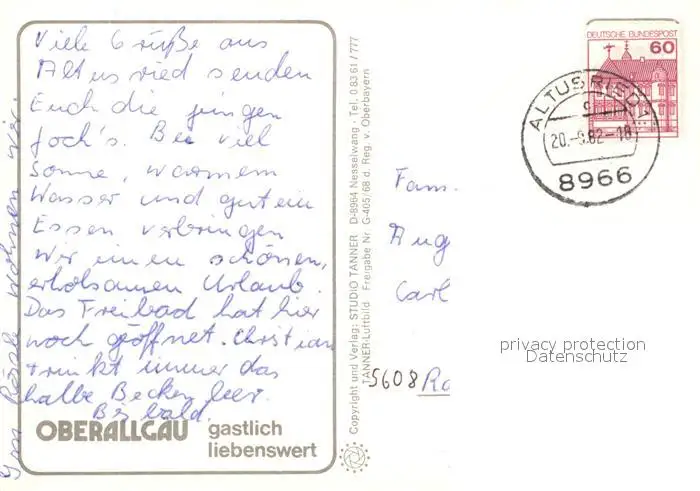 Viele Grüße aus
Altusried senden
Euch die jungen
Joch's. Bei viel
Sonne, warmem
Wasser und gutem
Essen verbringen
wir einen schönen,
erholsamen Urlaub.
Das Freibad hat hier
noch geöffnet. Christian
trinkt immer das
halbe Becken leer.
Bis bald.
wohnen wir.
OBERALLGÄU
gastlich
liebenswert
Copyright und Verlag: STUDIO TANNER D-8964 Nesselwang · Tel. 0 83 61 / 777
TANNER-Luftbild Freigabe Nr G-405/68 d. Reg. v. Oberbayern
DEUTSCHE BUNDESPOST
60
ALTUSRIED 1
20.-9.82-18
8966
Fam.
Aug
Carl
5608 Ra
privacy protection
Datenschutz